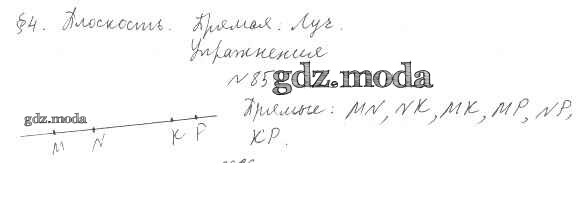 §4. Плоскость. Прямая. Луч.
Упражнения
№85
gdz.moda
Прямые: MN, NK, MK, MP, NP,
KP.
gdz.moda
M N K P